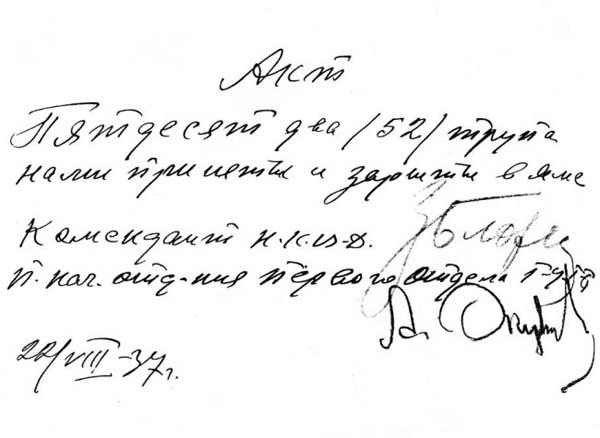 Акт
Пятдесят два /52/ трупа
нами приняты и зарыты в яме
Комендант н.к.в.д.
п. нач. отд-ния первого отдела
22/VIII-37г.